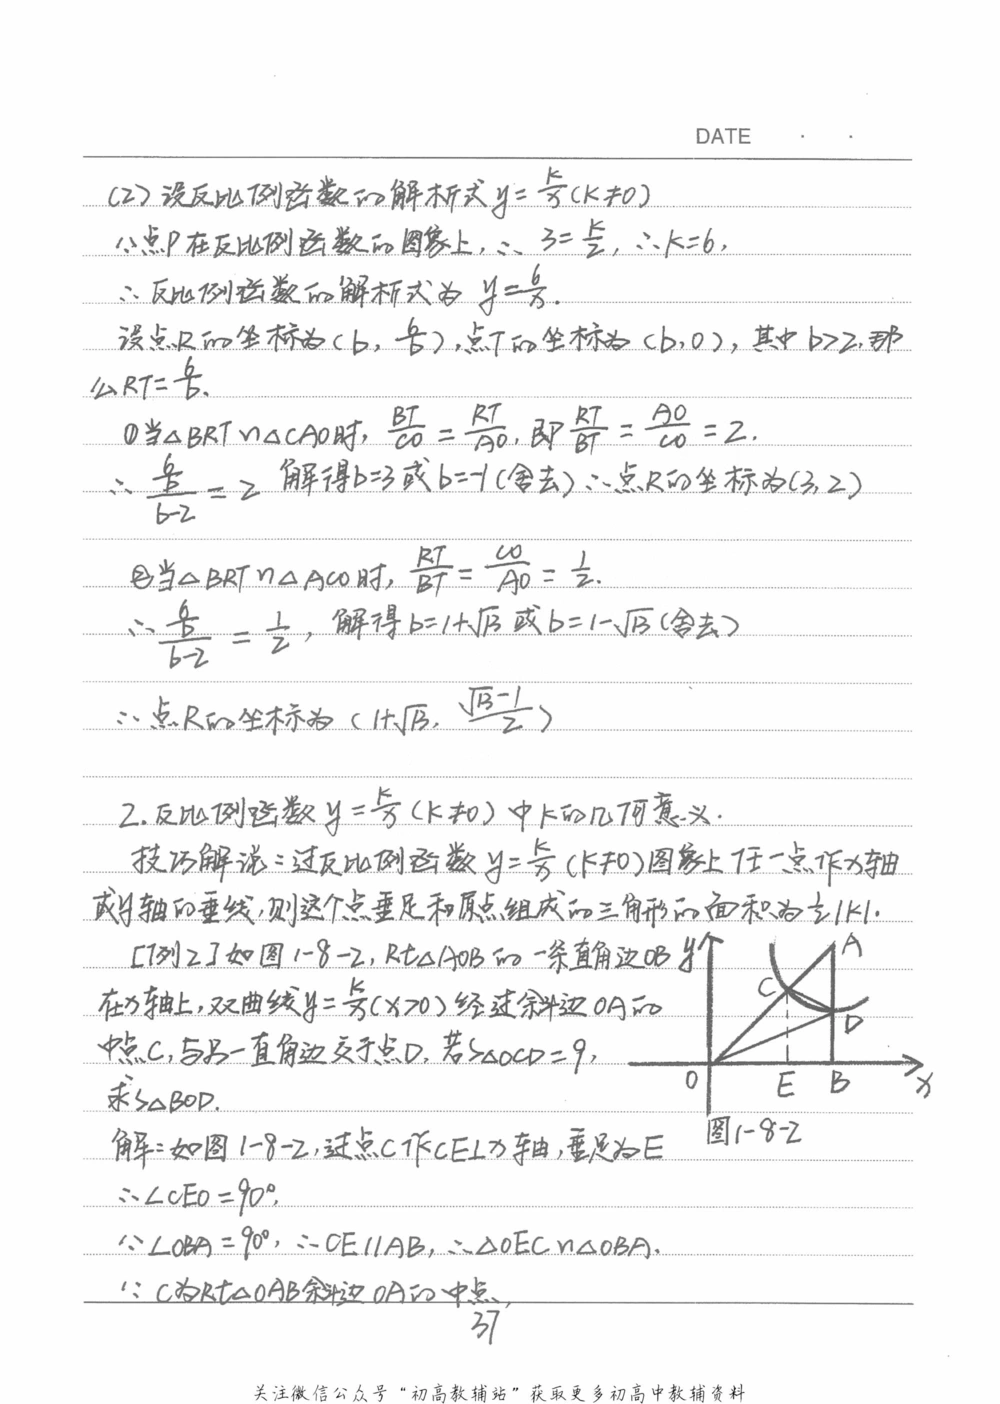 DATE · ·
(2)设反比例函数的解析式y=k/x(k≠0)
∵点P在反比例函数的图象上,∴3=k/2,∴k=6,
∴反比例函数的解析式为 y=6/x.
设点R的坐标为(b, 6/b),点T的坐标为(b,0),其中b>2,那
么RT=6/b.
①当△BRT∽△CAO时, BT/CO=RT/AO,即RT/BT=AO/CO=2.
∴(6/b)/(b-2)=2 解得b=3或b=-1(舍去)∴点R的坐标为(3,2)
②当△BRT∽△ACO时, RT/BT=CO/AO=1/2.
∴(6/b)/(b-2)=1/2, 解得b=1+√13或b=1-√13(舍去)
∴点R的坐标为(1+√13, (√13-1)/2)
2.反比例函数y=k/x(k≠0)中k的几何意义.
技巧解说:过反比例函数y=k/x(k≠0)图象上任一点作x轴
或y轴的垂线,则这个点垂足和原点组成的三角形的面积为½|k|.
[例2]如图1-8-2,Rt△AOB的一条直角边OB
在x轴上,双曲线y=k/x(x>0)经过斜边OA的
中点C,与另一直角边交于点D.若S△OCD=9,
求S△BOD.
y
A
C
D
O E B x
图1-8-2
解:如图1-8-2,过点C作CE⊥x轴,垂足为E
∴∠CEO=90°,
∵∠OBA=90°,∴CE//AB,∴△OEC∽△OBA.
∵C为Rt△OAB斜边OA的中点,
37
关注微信公众号“初高教辅站”获取更多初高中教辅资料